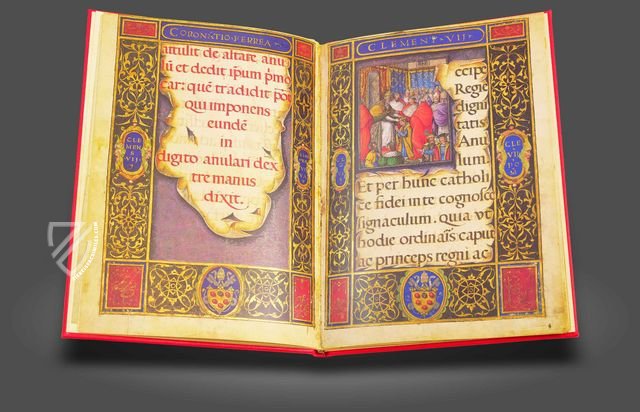 CORONATIO FERREA
attulit de altare anu
lū et dedit ip̄um p̄mo
car: quē tradidit pōt
qui imponens
eundē
in
digito anulari dex
tre manus
dixit.
CLE
MENS
VII
CLEMENT VII
ccipe
Regie
digni
tatis
Anu
lum.
Et per hunc catholi
ce fidei in te cognosce
signaculum. quia vt
hodie ordinaīs: caput
ac princeps regni ac